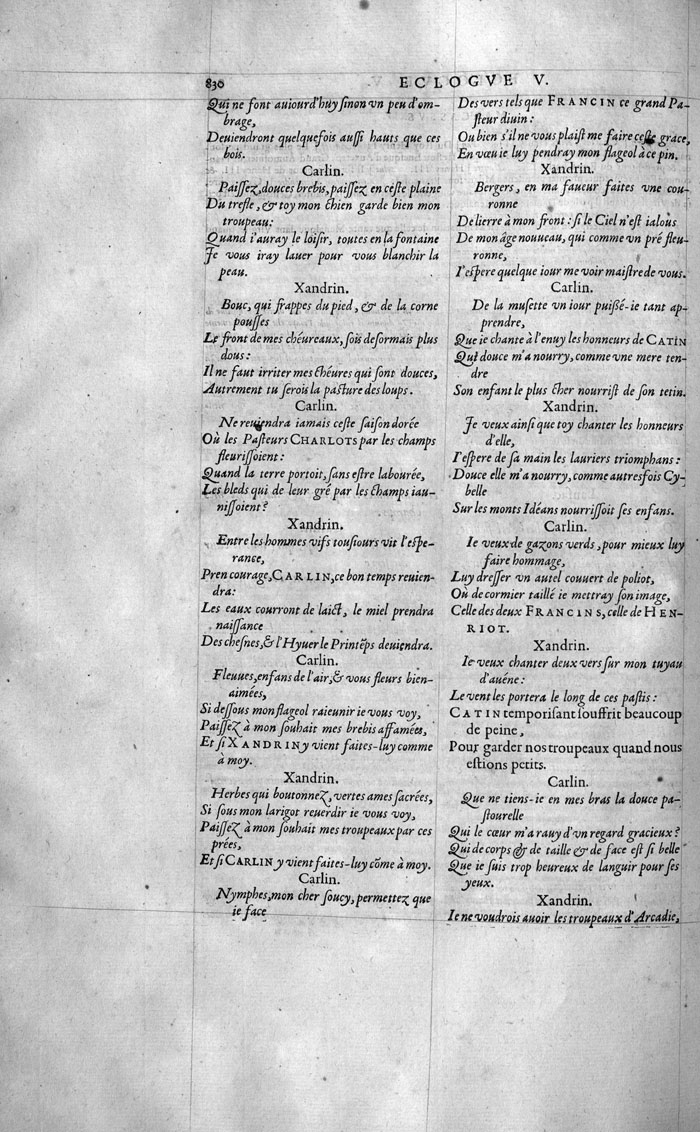 830 ECLOGVE V.
Qui ne font auiourd'huy sinon vn peu d'om-
brage,
Deuiendront quelquefois aussi hauts que ces
bois.
Carlin.
Paissez, douces brebis, paissez en ceste plaine
Du trefle, & toy mon chien garde bien mon
troupeau:
Quand i'auray le loisir, toutes en la fontaine
Je vous iray lauer pour vous blanchir la
peau.
Xandrin.
Bouc, qui frappes du pied, & de la corne
pousses
Le front de mes chéureaux, sois desormais plus
dous:
Il ne faut irriter mes chéures qui sont douces,
Autrement tu serois la pasture des loups.
Carlin.
Ne reuiendra iamais ceste saison dorée
Où les Pasteurs CHARLOTS par les champs
fleurissoient:
Quand la terre portoit, sans estre labourée,
Les bleds qui de leur gré par les champs iau-
nissoient?
Xandrin.
Entre les hommes vifs tousiours vit l'espe-
rance,
Pren courage, CARLIN, ce bon temps reuien-
dra:
Les eaux courront de laict, le miel prendra
naissance
Des chesnes, & l'Hyuer le Printẽps deuiendra.
Carlin.
Fleuues, enfans de l'air, & vous fleurs bien-
aimées,
Si dessous mon flageol raieunir ie vous voy,
Paissez à mon souhait mes brebis affamées,
Et si XANDRIN y vient faites-luy comme
à moy.
Xandrin.
Herbes qui boutonnez, vertes ames sacrées,
Si sous mon larigot reuerdir ie vous voy,
Paissez à mon souhait mes troupeaux par ces
prées,
Et si CARLIN y vient faites-luy cõme à moy.
Carlin.
Nymphes, mon cher soucy, permettez que
ie face
Des vers tels que FRANCIN ce grand Pa-
steur diuin:
Ou bien s'il ne vous plaist me faire ceste grace,
En vœu ie luy pendray mon flageol à ce pin.
Xandrin.
Bergers, en ma faueur faites vne cou-
ronne
De lierre à mon front: si le Ciel n'est ialous
De mon âge nouueau, qui comme vn pré fleu-
ronne,
I'espere quelque iour me voir maistre de vous.
Carlin.
De la musette vn iour puissé-ie tant ap-
prendre,
Que ie chante à l'enuy les honneurs de CATIN
Qui douce m'a nourry, comme vne mere ten-
dre
Son enfant le plus cher nourrist de son tetin.
Xandrin.
Je veux ainsi que toy chanter les honneurs
d'elle,
I'espere de sa main les lauriers triomphans:
Douce elle m'a nourry, comme autresfois Cy-
belle
Sur les monts Idéans nourrissoit ses enfans.
Carlin.
Ie veux de gazons verds, pour mieux luy
faire hommage,
Luy dresser vn autel couuert de poliot,
Où de cormier taillé ie mettray son image,
Celle des deux FRANCINS, celle de HEN-
RIOT.
Xandrin.
Ie veux chanter deux vers sur mon tuyau
d'auéne:
Le vent les portera le long de ces pastis:
CATIN temporisant souffrit beaucoup
de peine,
Pour garder nos troupeaux quand nous
estions petits.
Carlin.
Que ne tiens-ie en mes bras la douce pa-
stourelle
Qui le cœur m'a rauy d'vn regard gracieux?
Qui de corps & de taille & de face est si belle
Que ie suis trop heureux de languir pour ses
yeux.
Xandrin.
Ie ne voudrois auoir les troupeaux d'Arcadie,